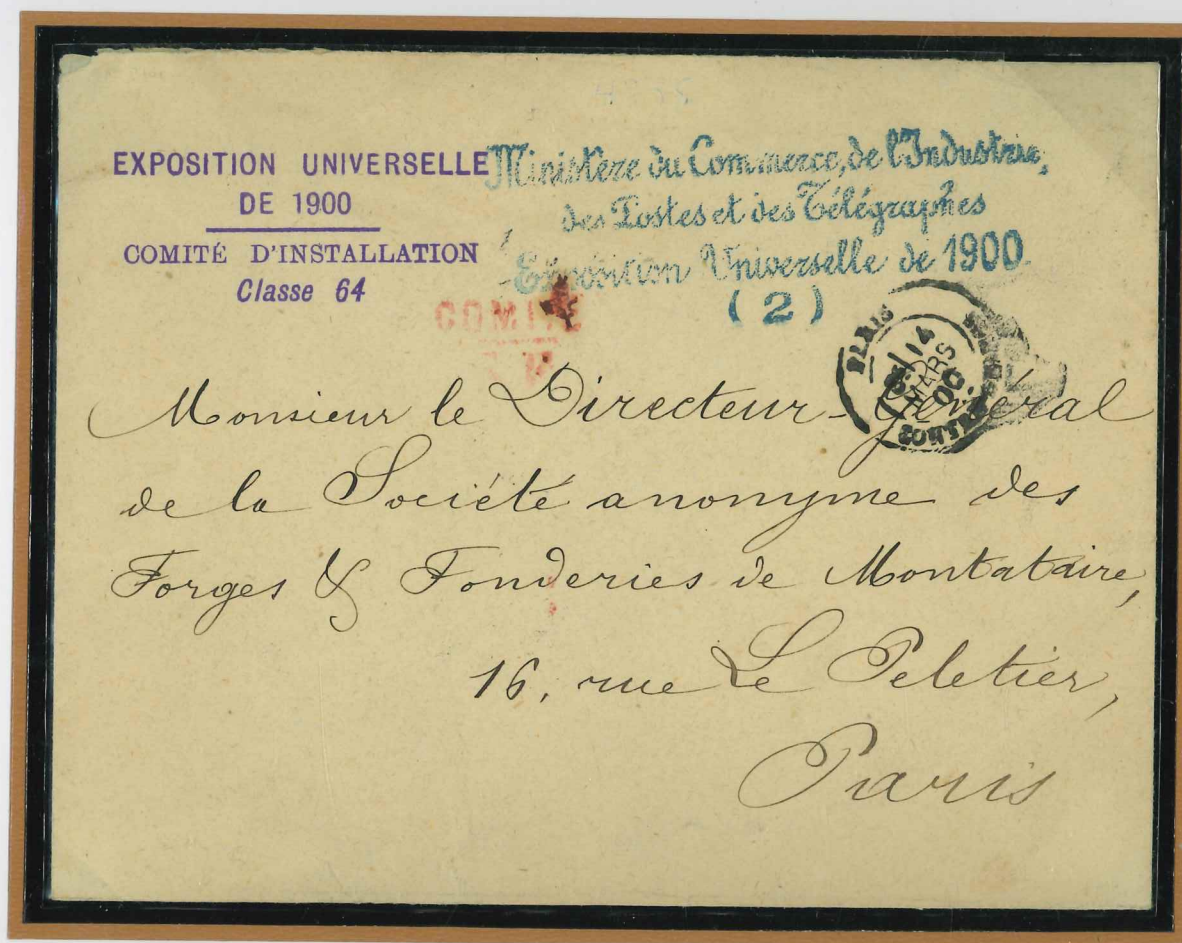 EXPOSITION UNIVERSELLE
DE 1900
COMITÉ D'INSTALLATION
Classe 64
Ministère du Commerce, de l'Industrie,
des Postes et des Télégraphes
Exposition Universelle de 1900.
(2)
COMITÉ
PARIS
14
MARS
00
Monsieur le Directeur-Général
de la Société anonyme des
Forges & Fonderies de Montataire,
16, rue Le Peletier,
Paris